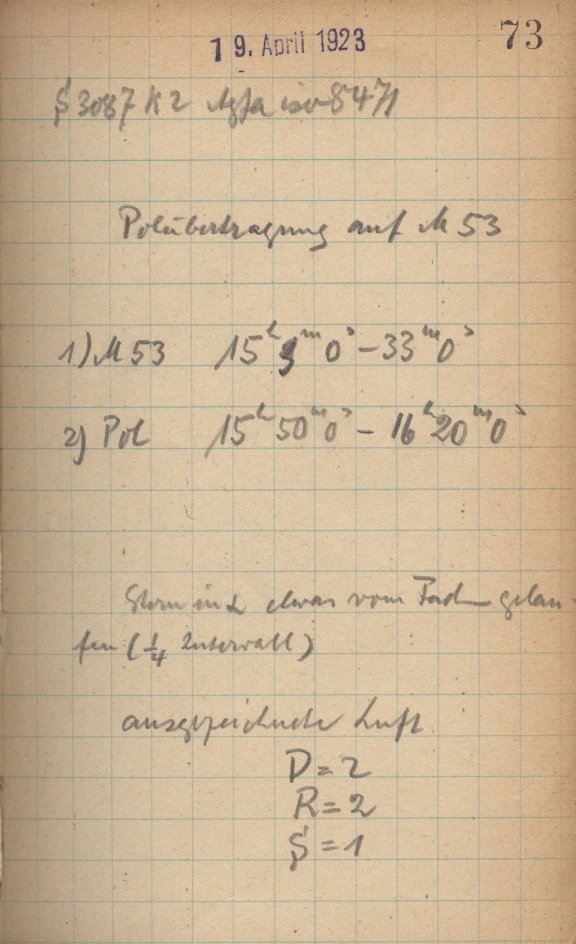 19. April 1923
73
S 3087 K2 Agfa iso 8471
Polübertragung auf M 53
1) M 53 15ʰ 3ᵐ 0ˢ – 33ᵐ 0ˢ
2) Pol 15ʰ 50ᵐ 0ˢ – 16ʰ 20ᵐ 0ˢ
Stern in α etwas vom Faden gelau-
fen (1/4 Intervall)
ausgezeichnete Luft
D = 2
R = 2
S = 1